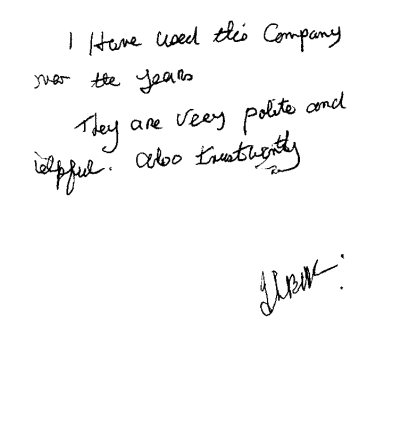 I Have used this Company
over the years
They are very polite and
helpful. also trustworthy